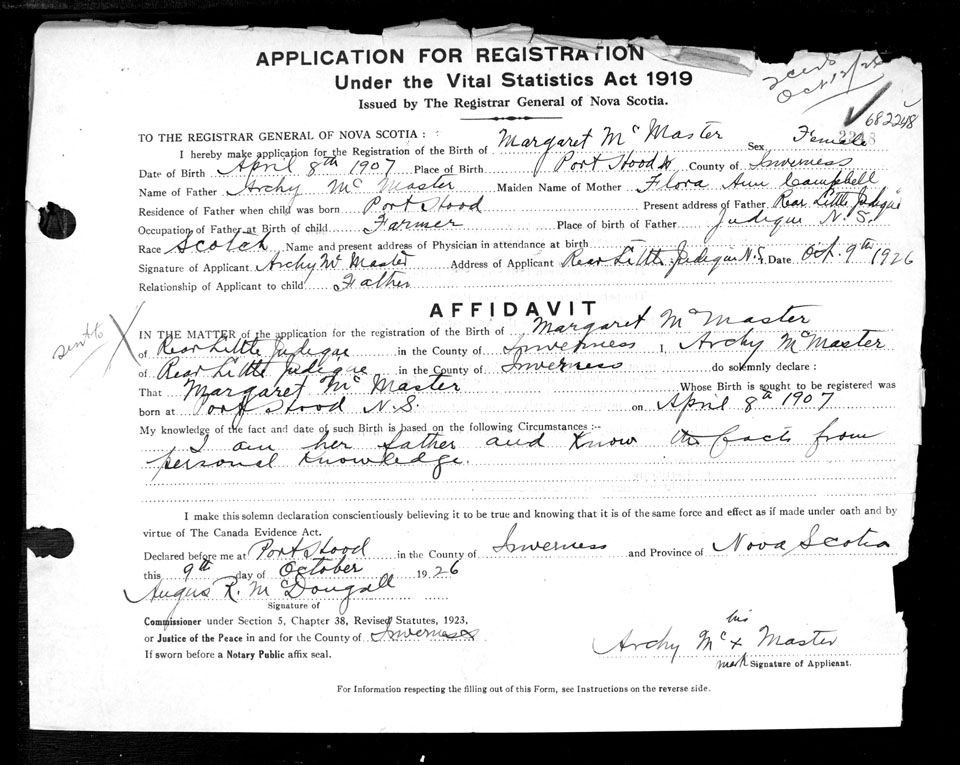 APPLICATION FOR REGISTRATION
Under the Vital Statistics Act 1919
Issued by The Registrar General of Nova Scotia.
Oct 12/26
682248
TO THE REGISTRAR GENERAL OF NOVA SCOTIA :
I hereby make application for the Registration of the Birth of Margaret Mc Master Sex Female
Date of Birth April 8th 1907 Place of Birth Port Hood County of Inverness
Name of Father Archy Mc Master Maiden Name of Mother Flora Ann Campbell
Residence of Father when child was born Port Hood Present address of Father Rear Little Judique
Occupation of Father at Birth of child Farmer Place of birth of Father Judique N.S.
Race Scotch Name and present address of Physician in attendance at birth
Signature of Applicant Archy Mc Master Address of Applicant Rear Little Judique N.S. Date Oct. 9th 1926
Relationship of Applicant to child Father
AFFIDAVIT
sent to
IN THE MATTER of the application for the registration of the Birth of Margaret Mc Master
of Rear Little Judique in the County of Inverness I, Archy McMaster
of Rear Little Judique in the County of Inverness do solemnly declare :
That Margaret Mc Master Whose Birth is sought to be registered was
born at Port Hood N.S. on April 8th 1907
My knowledge of the fact and date of such Birth is based on the following Circumstances :--
I am her father and know the facts from
personal knowledge.
I make this solemn declaration conscientiously believing it to be true and knowing that it is of the same force and effect as if made under oath and by
virtue of The Canada Evidence Act.
Declared before me at Port Hood in the County of Inverness and Province of Nova Scotia
this 9th day of October 1926
Angus R. McDougall
Signature of
Commissioner under Section 5, Chapter 38, Revised Statutes, 1923,
or Justice of the Peace in and for the County of Inverness
If sworn before a Notary Public affix seal.
his
Archy Mc x Master
mark Signature of Applicant.
For Information respecting the filling out of this Form, see Instructions on the reverse side.